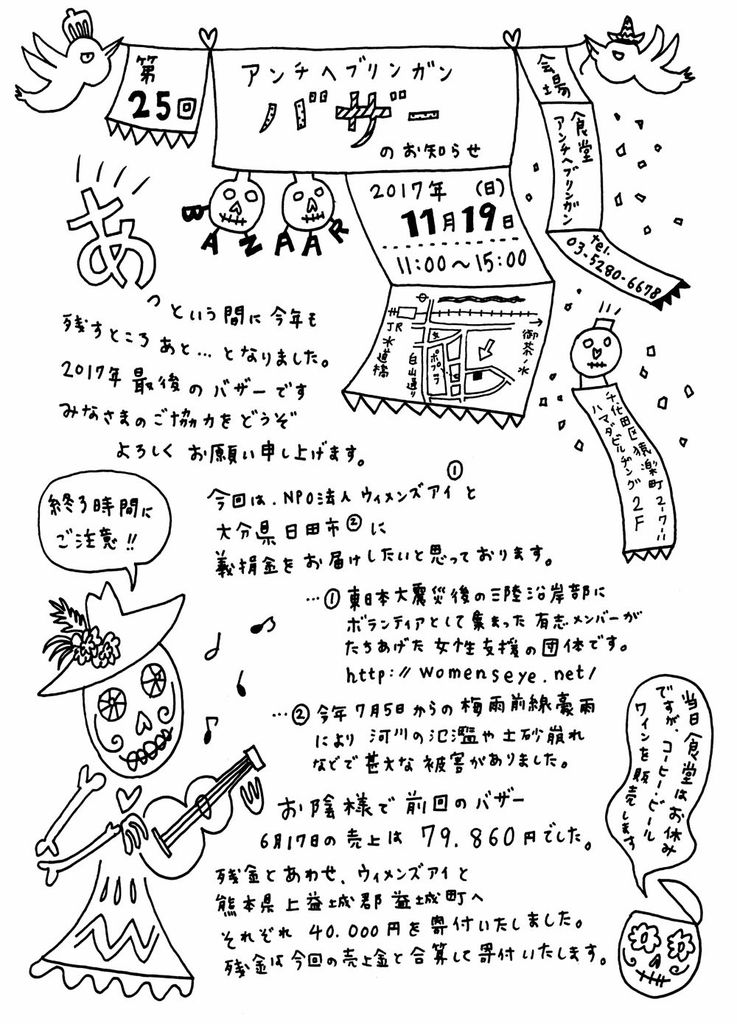 第
25回
アンチヘブリンガン
バザー
のお知らせ
BAZAAR
会場の
食堂
アンチヘブリンガン
tel.
03-5280-6678
2017年 (日)
11月19日
11:00〜15:00
JR
水道橋
白山通り
ポプラ
御茶ノ水
千代田区猿楽町2-7-11
ハマダビルヂング2F
あ
っという間に今年も
残すところあと…となりました。
2017年最後のバザーです
みなさまのご協力をどうぞ
よろしくお願い申し上げます。
終了時間に
ご注意!!
今回は、NPO法人ウィメンズアイ①と
大分県日田市②に
義捐金をお届けしたいと思っております。
…①東日本大震災後の三陸沿岸部に
ボランティアとして集まった有志メンバーが
たちあげた女性支援の団体です。
http://womenseye.net/
…②今年7月5日からの梅雨前線豪雨
により河川の氾濫や土砂崩れ
などで甚大な被害がありました。
お陰様で前回のバザー
6月17日の売上は79.860円でした。
残金とあわせ、ウィメンズアイと
熊本県上益城郡益城町へ
それぞれ40.000円を寄付いたしました。
残金は今回の売上金と合算して寄付いたします。
当日食堂はお休み
ですが、コーヒー・ビール
ワインを販売します